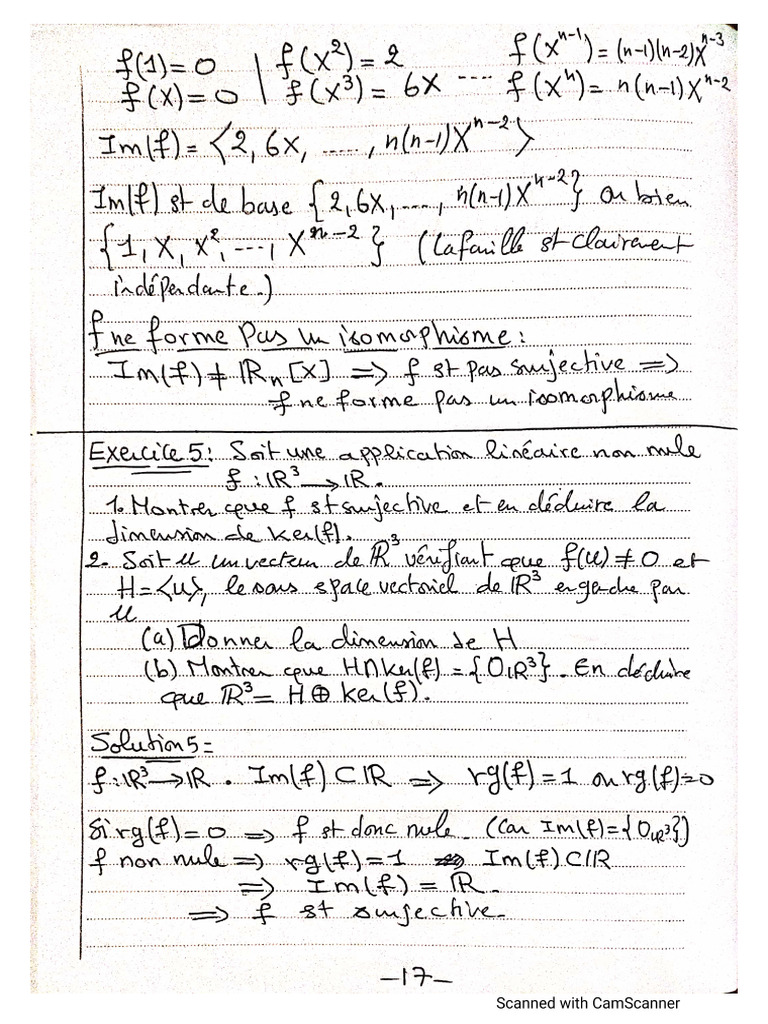 f(1)=0 | f(X²)=2 f(Xⁿ⁻¹)=(n-1)(n-2)Xⁿ⁻³
f(X)=0 | f(X³)=6X ---- f(Xⁿ)=n(n-1)Xⁿ⁻²
Im(f)=⟨2,6X,.....,n(n-1)Xⁿ⁻²⟩
Im(f) st de base {2,6X,...,n(n-1)Xⁿ⁻²} ou bien
{1,X,X²,...,Xⁿ⁻²} (La faille st clairement
indépendante.)
f ne forme pas un isomorphisme:
Im(f)≠ℝₙ[X] ⇒ f st pas surjective ⇒
f ne forme pas un isomorphisme
Exercice 5: Soit une application linéaire non nulle
f:ℝ³→ℝ.
1. Montrer que f st surjective et en déduire la
dimension de Ker(f).
2. Soit u un vecteur de ℝ³ vérifiant que f(u)≠0 et
H=⟨u⟩, le sous espace vectoriel de ℝ³ engendre par
u
(a) Donner la dimension de H
(b) Montrer que H∩Ker(f)={0ℝ³}. En déduire
que ℝ³=H⊕Ker(f).
Solution 5=
f:ℝ³→ℝ . Im(f)⊂ℝ ⇒ rg(f)=1 ou rg(f)=0
Si rg(f)=0 ⇒ f st donc nulle. (Car Im(f)={0ℝ³})
f non nulle ⇒ rg(f)=1 Im(f)⊂ℝ
⇒ Im(f)=ℝ.
⇒ f st surjective.
-17-
Scanned with CamScanner